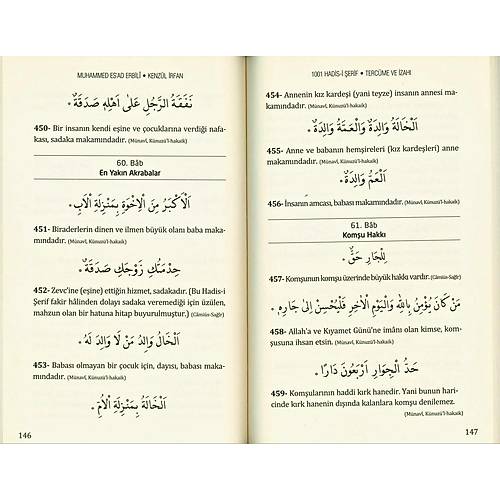 MUHAMMED ES'AD ERBİLÎ • KENZÜL İRFAN
نَفَقَةُ الرَّجُلِ عَلَى اَهْلِهِ صَدَقَةٌ .
450- Bir insanın kendi eşine ve çocuklarına verdiği nafa-
kası, sadaka makamındadır. (Münavî, Künuzü'l-hakaik)
60. Bâb
En Yakın Akrabalar
اَلْاَكْبَرُ مِنَ الْاِخْوَةِ بِمَنْزِلَةِ الْاَبِ .
451- Biraderlerin dinen ve ilmen büyük olanı baba maka-
mındadır. (Münavî, Künuzü'l-hakaik)
خِدْمَتُكِ زَوْجَكِ صَدَقَةٌ .
452- Zevc'ine (eşine) ettiğin hizmet, sadakadır. (Bu Hadis-i
Şerif fakir hâlinden dolayı sadaka veremediği için üzülen,
mahzun olan bir hatuna hitap buyurulmuştur.) (Câmiüs-Sağîr)
اَلْخَالُ وَالِدُ مَنْ لَا وَالِدَ لَهُ .
453- Babası olmayan bir çocuk için, dayısı, babası maka-
mındadır. (Münavî, Künuzü'l-hakaik)
اَلْخَالَةُ بِمَنْزِلَةِ الْاُمِّ .
146
1001 HADİS-İ ŞERİF • TERCÜME VE İZAHI
454- Annenin kız kardeşi (yani teyze) insanın annesi ma-
kamındadır. (Münavî, Künuzü'l-hakaik)
اَلْخَالَةُ وَالِدَةٌ وَالْعَمَّةُ وَالِدَةٌ .
455- Anne ve babanın hemşireleri (kız kardeşleri) anne
makamındadır. (Münavî, Künuzü'l-hakaik)
اَلْعَمُّ وَالِدٌ .
456- İnsanın amcası, babası makamındadır. (Münavî, Künuzü'l-hakaik)
61. Bâb
Komşu Hakkı
لِلْجَارِ حَقٌّ .
457- Komşunun komşu üzerinde büyük hakkı vardır. (Câmiüs-Sağîr)
مَنْ كَانَ يُؤْمِنُ بِاللهِ وَالْيَوْمِ الْاٰخِرِ فَلْيُحْسِنْ اِلَى جَارِهِ .
458- Allah'a ve Kıyamet Günü'ne imânı olan kimse, kom-
şusuna ihsan etsin. (Münavî, Künuzü'l-hakaik)
حَدُّ الْجِوَارِ اَرْبَعُونَ دَارًا .
459- Komşularının haddi kırk hanedir. Yani bunun hari-
cinde kırk hanenin dışında kalanlara komşu denilemez.
(Münavî, Künuzü'l-hakaik)
147